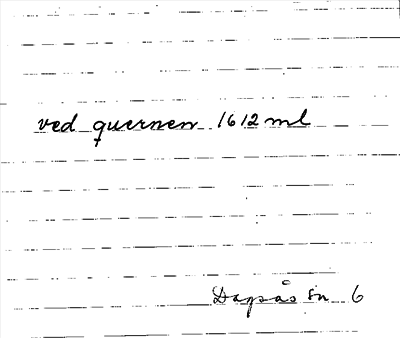 ved quernen 1612 ml
Dapsås sn 6